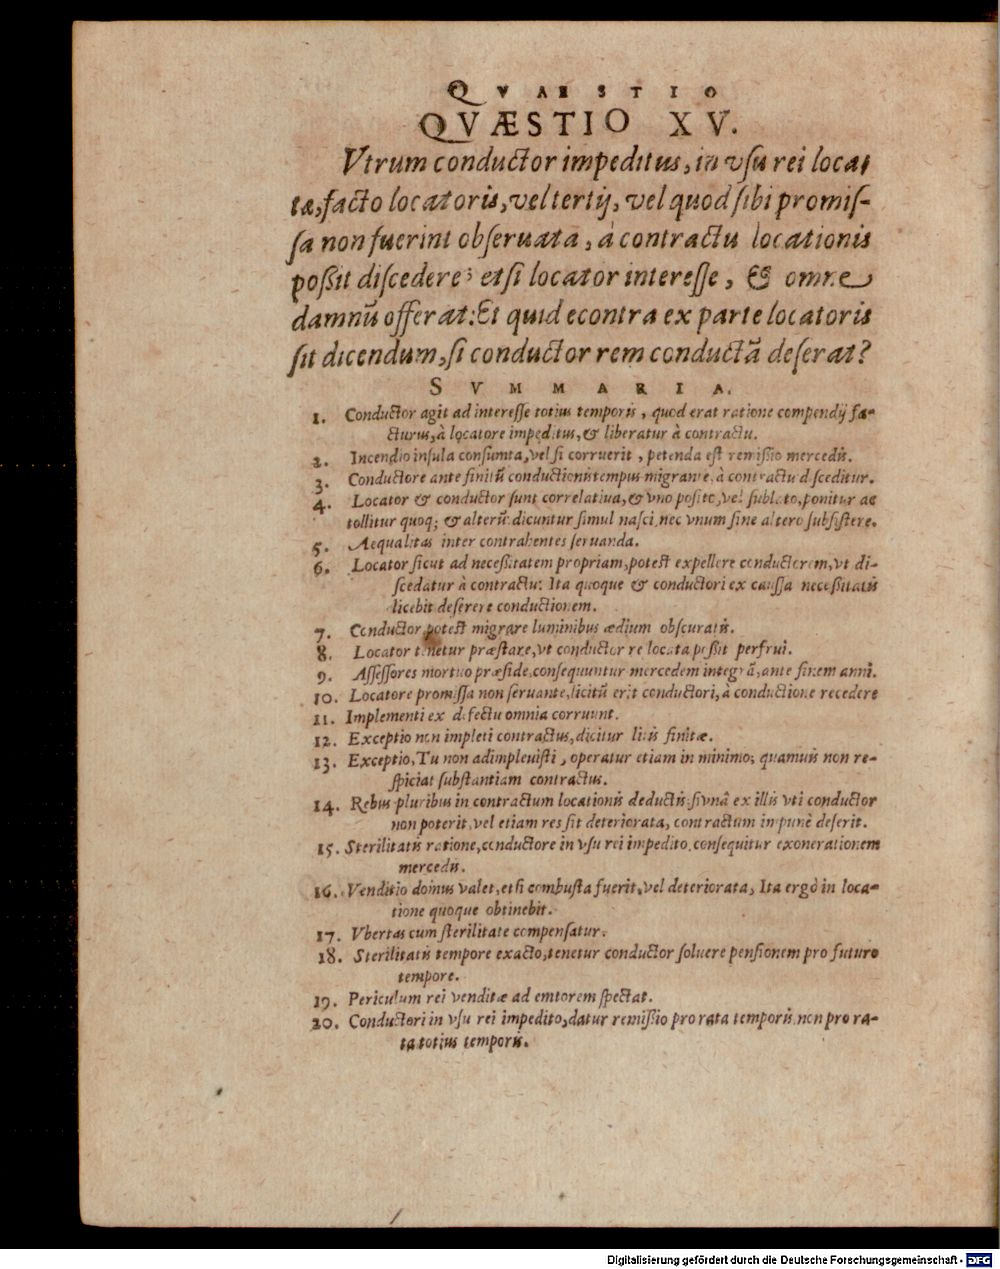 QVAESTIO
QVÆSTIO XV.
Vtrum conductor impeditus, in vſu rei loca-
tæ, facto locatoris, vel tertij, vel quod ſibi promiſ-
ſa non fuerint obſeruata, à contractu locationis
poßit diſcedere; etſi locator intereſſe, & omne
damnũ offerat: Et quid econtra ex parte locatoris
ſit dicendum, ſi conductor rem conductã deſerat?
SVMMARIA.
1. Conductor agit ad intereſſe totius temporis, quod erat ratione compendij fa-
cturus, à locatore impeditus, & liberatur à contractu.
2. Incendio inſula conſumta, vel ſi corruerit, petenda eſt remißio mercedis.
3. Conductore ante finitũ conductionis tempus migrante, à contractu diſceditur.
4. Locator & conductor ſunt correlatiua, & vno poſito, vel ſublato, ponitur ac
tollitur quoq; & alterũ: dicuntur ſimul naſci, nec vnum ſine altero ſubſiſtere.
5. Aequalitas inter contrahentes ſeruanda.
6. Locator ſicut ad neceßitatem propriam, poteſt expellere conductorem, vt di-
ſcedatur à contractu: Ita quoque & conductori ex cauſſa neceßitatis
licebit deſerere conductionem.
7. Conductor poteſt migrare luminibus ædium obſcuratis.
8. Locator tenetur præſtare, vt conductor re locata poßit perfrui.
9. Aſſeſſores mortuo præſide, conſequuntur mercedem integrã, ante finem anni.
10. Locatore promiſſa non ſeruante, licitũ erit conductori, à conductione recedere
11. Implementi ex defectu omnia corruunt.
12. Exceptio non impleti contractus, dicitur litis finitæ.
13. Exceptio, Tu non adimpleuiſti, operatur etiam in minimo; quamuis non re-
ſpiciat ſubſtantiam contractus.
14. Rebus pluribus in contractum locationis deductis: ſi vnâ ex illis vti conductor
non poterit, vel etiam res ſit deteriorata, contractum impunè deſerit.
15. Sterilitatis ratione, conductore in vſu rei impedito, conſequitur exonerationem
mercedis.
16. Venditio domus valet, etſi combuſta fuerit, vel deteriorata, Ita ergò in loca-
tione quoque obtinebit.
17. Vbertas cum ſterilitate compenſatur.
18. Sterilitatis tempore exacto, tenetur conductor ſoluere penſionem pro futuro
tempore.
19. Periculum rei venditæ ad emtorem ſpectat.
20. Conductori in vſu rei impedito, datur remißio pro rata temporis, non pro ra-
ta totius temporis.
Digitalisierung gefördert durch die Deutsche Forschungsgemeinschaft - DFG